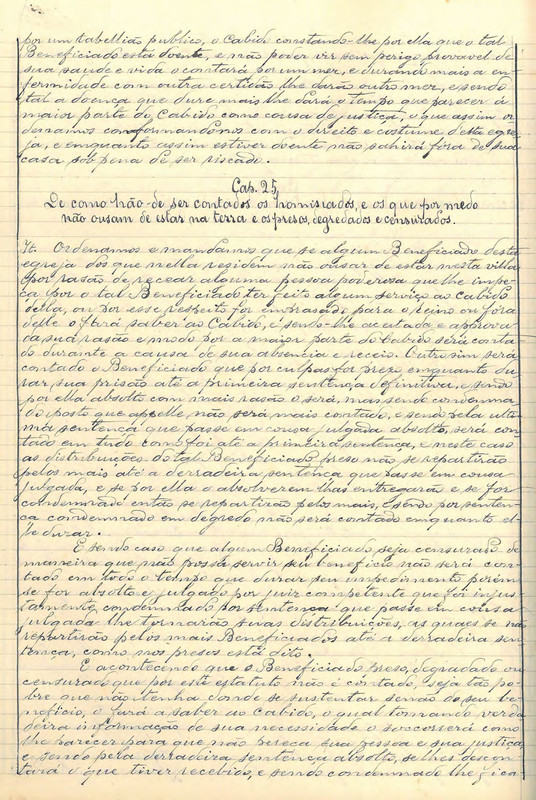 por um tabellião publico, o Cabido constando-lhe por ella que o tal
Beneficiado está doente, e não poder vir sem perigo provavel de
sua saude e vida o contará por um mez, e durando mais a en-
fermidade com outra certidão lhe dará outro mez, e sendo
tal a doença que dure mais lhe dará o tempo que parecer á
maior parte do Cabido como cousa de justiça, o que assim or
denamos conformandonos com o direito e costume desta egre
ja, e emquanto assim estiver doente não sahirá fóra de sua
casa sob pena de ser riscado.
Cap. 25,
De como hão-de ser contados os homisiados, e os que por medo
não ousam de estar na terra e os presos, degredados e censurados.
It. Ordenamos e mandamos que se algum Beneficiado desta
egreja dos que nella residem não ousar de estar nesta villa
por rasão de recear alguma pessoa poderosa que lhe impe-
ça por o tal Beneficiado ter feito algum serviço ao Cabido
della, ou por esse respeito for para o reino ou fóra
delle o fará saber ao Cabido, e sendo-lhe acatada e approva
da sua rasão e modo por a maior parte do Cabido será conta
do durante a causa de sua absencia e receio. Outro sim será
contado o Beneficiado que por culpas for prezo emquanto du
rar sua prisão até a primeira sentença definitiva, e sendo
por ella absolto com mais rasão o será, mas sendo condemna
do posto que appelle não será mais contado, e sendo pela ulti
ma sentença que passe em cousa julgada absolto, será con
tado em tudo como foi até a primeira sentença, e neste caso
as distribuições do tal Beneficiado preso não se repartirão
pelos mais até a derradeira sentença que passe em cousa
julgada, e se por ella o absolverem lhas entregarão e se for
condemnado então se repartirão pelos mais, e sendo por senten
ça condemnado em degredo não será contado emquanto el-
le durar.
E sendo caso que algum Beneficiado seja censurado de
maneira que não possa servir seu beneficio não será con-
tado em todo o tempo que durar seu impedimento porém
se for absolto e julgado por juiz competente que foi injus-
tamente condemnado por sentença que passe em cousa
julgada lhe tornarão suas distribuições, as quaes se não
repartirão pelos mais Beneficiados até a derradeira sen
tença, como nos presos está dito.
E acontecendo que o Beneficiado preso, degradado ou
censurado que por este estatuto não é contado, seja tão po-
bre que não tenha donde se sustentar senão do seu be-
neficio, o fará a saber ao Cabido, o qual tomando verda
deira informação de sua necessidade o soccorrerá como
lhe parecer para que não pereça sua pessoa e sua justiça
e sendo pela derradeira sentença absolto, se lhe descon-
tará o que tiver recebido, e sendo condemnado lhe fica-